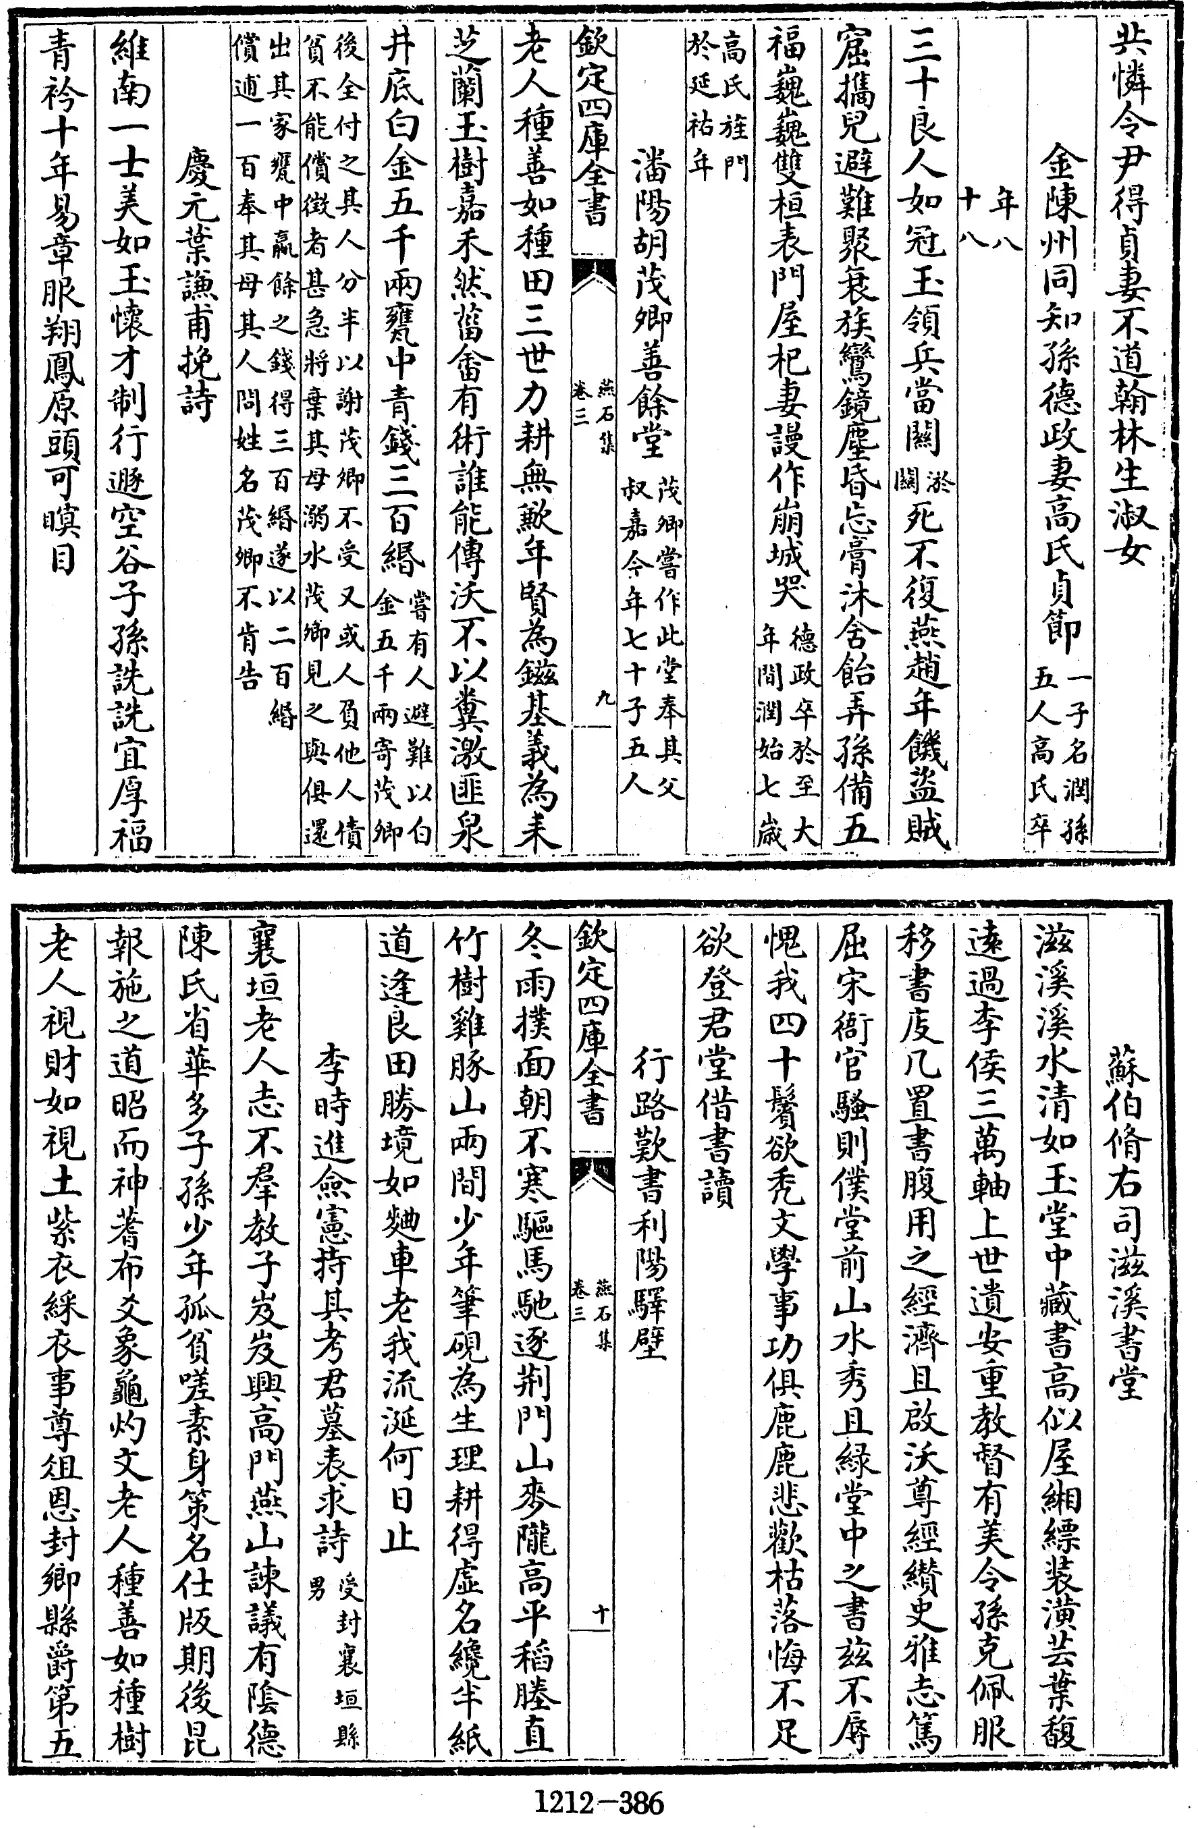 共憐令尹得貞妻不道翰林生淑女
金陳州同知孫德政妻高氏貞節一子名潤孫
五人高氏卒
年八
十八
三十良人如冠玉領兵當關淤
關死不復燕趙年饑盜賊
窟攜兒避難聚衰族鸞鏡塵昏忘膏沐含飴弄孫備五
福巍巍雙桓表門屋杞妻謾作崩城哭德政卒於至大
年間潤始七歲
高氏旌門
於延祐年
潘陽胡茂卿善餘堂茂卿嘗作此堂奉其父
叔嘉今年七十子五人
欽定四庫全書
燕石集
卷三
九
老人種善如種田三世力耕無歉年賢為鎡基義為耒
芝蘭玉樹嘉禾然菑畬有術誰能傳沃不以糞激匪泉
井底白金五千兩甕中青錢三百緡嘗有人避難以白
金五千兩寄茂卿
後全付之其人分半以謝茂卿不受又或人負他人債
貧不能償徴者甚急將棄其母溺水茂卿見之與俱還
出其家甕中贏餘之錢得三百緡遂以二百緡
償逋一百奉其母其人問姓名茂卿不肯告
慶元葉謙甫挽詩
維南一士美如玉懷才制行遯空谷子孫詵詵宜厚福
青衿十年易章服翔鳳原頭可瞑目
蘇伯脩右司滋溪書堂
滋溪溪水清如玉堂中藏書高似屋緗縹裝潢芸葉馥
遠過李侯三萬軸上世遺安重教督有美令孫克佩服
移書庋几置書腹用之經濟且啟沃尊經纘史雅志篤
屈宋衙官騷則僕堂前山水秀且緑堂中之書兹不辱
愧我四十鬢欲禿文學事功俱鹿鹿悲歡枯落悔不足
欲登君堂借書讀
行路歎書利陽驛壁
欽定四庫全書
燕石集
卷三
十
冬雨撲面朝不寒驅馬馳逐荆門山麥隴高平稻塍直
竹樹雞豚山兩間少年筆硯為生理耕得虚名纔半紙
道逢良田勝境如麯車老我流涎何日止
李時進僉憲持其考君墓表求詩受封襄垣縣
男
襄垣老人志不羣教子岌岌興高門燕山諫議有隂德
陳氏省華多子孫少年孤貧嗟素身策名仕版期後昆
報施之道昭而神蓍布爻象龜灼文老人種善如種樹
老人視財如視土紫衣綵衣事尊俎恩封鄉縣爵第五
1212-386